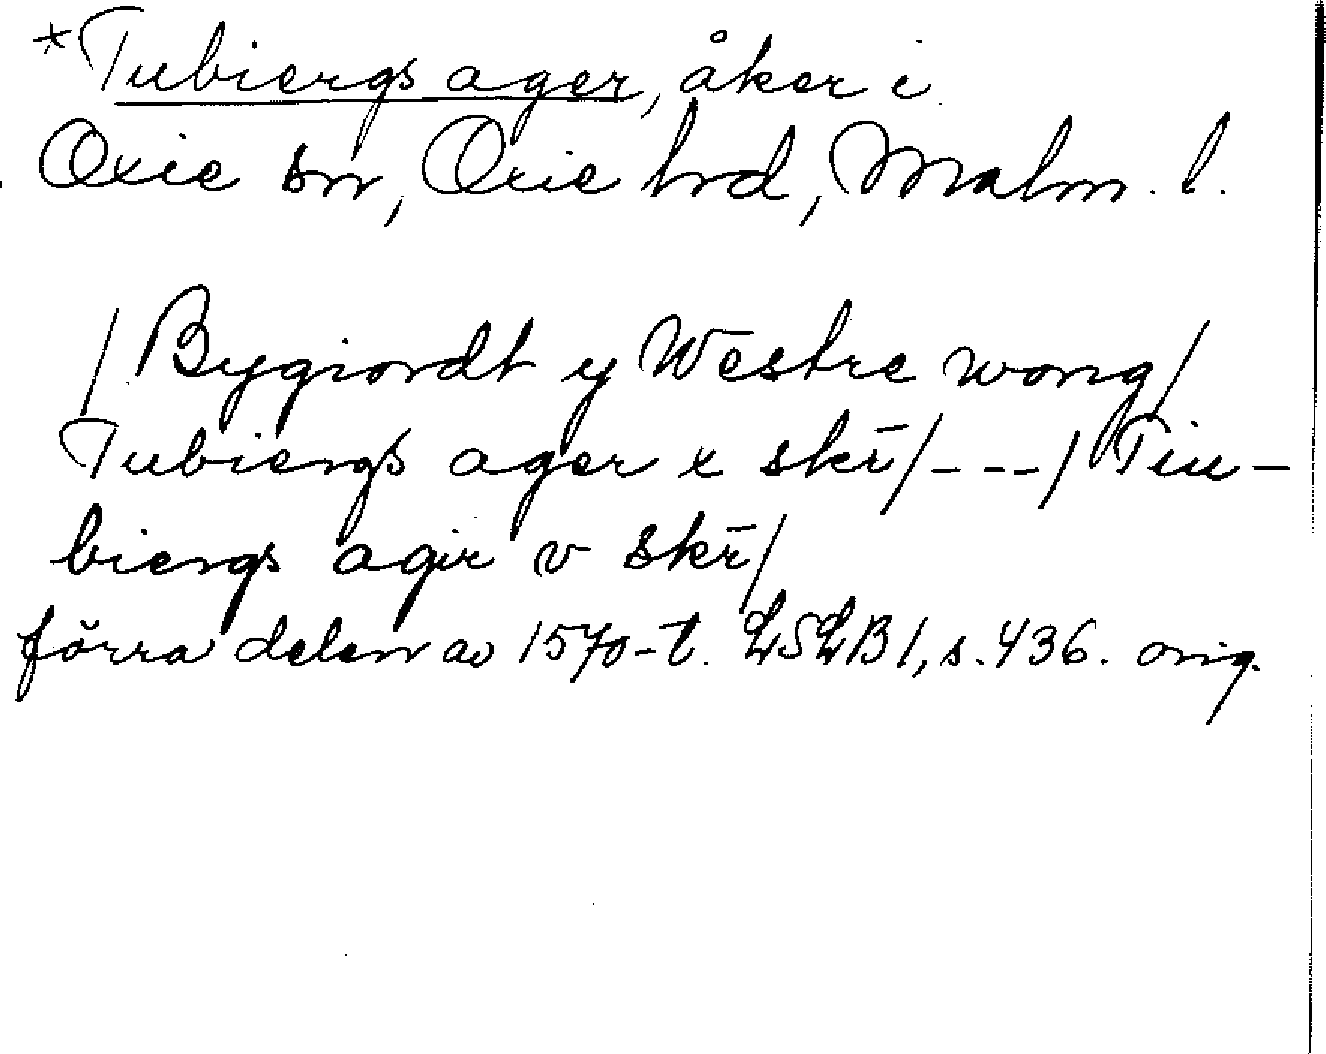 *Tubiergs ager, åker i
Oxie sn, Oxie hrd, Malm. l.
/Bygiordt y Westre wong/
Tubiergs ager x skr̄/---/ Tiu-
biergs agir v skr̄/
förra delen av 1570-t. LSLB 1, s. 436. orig.